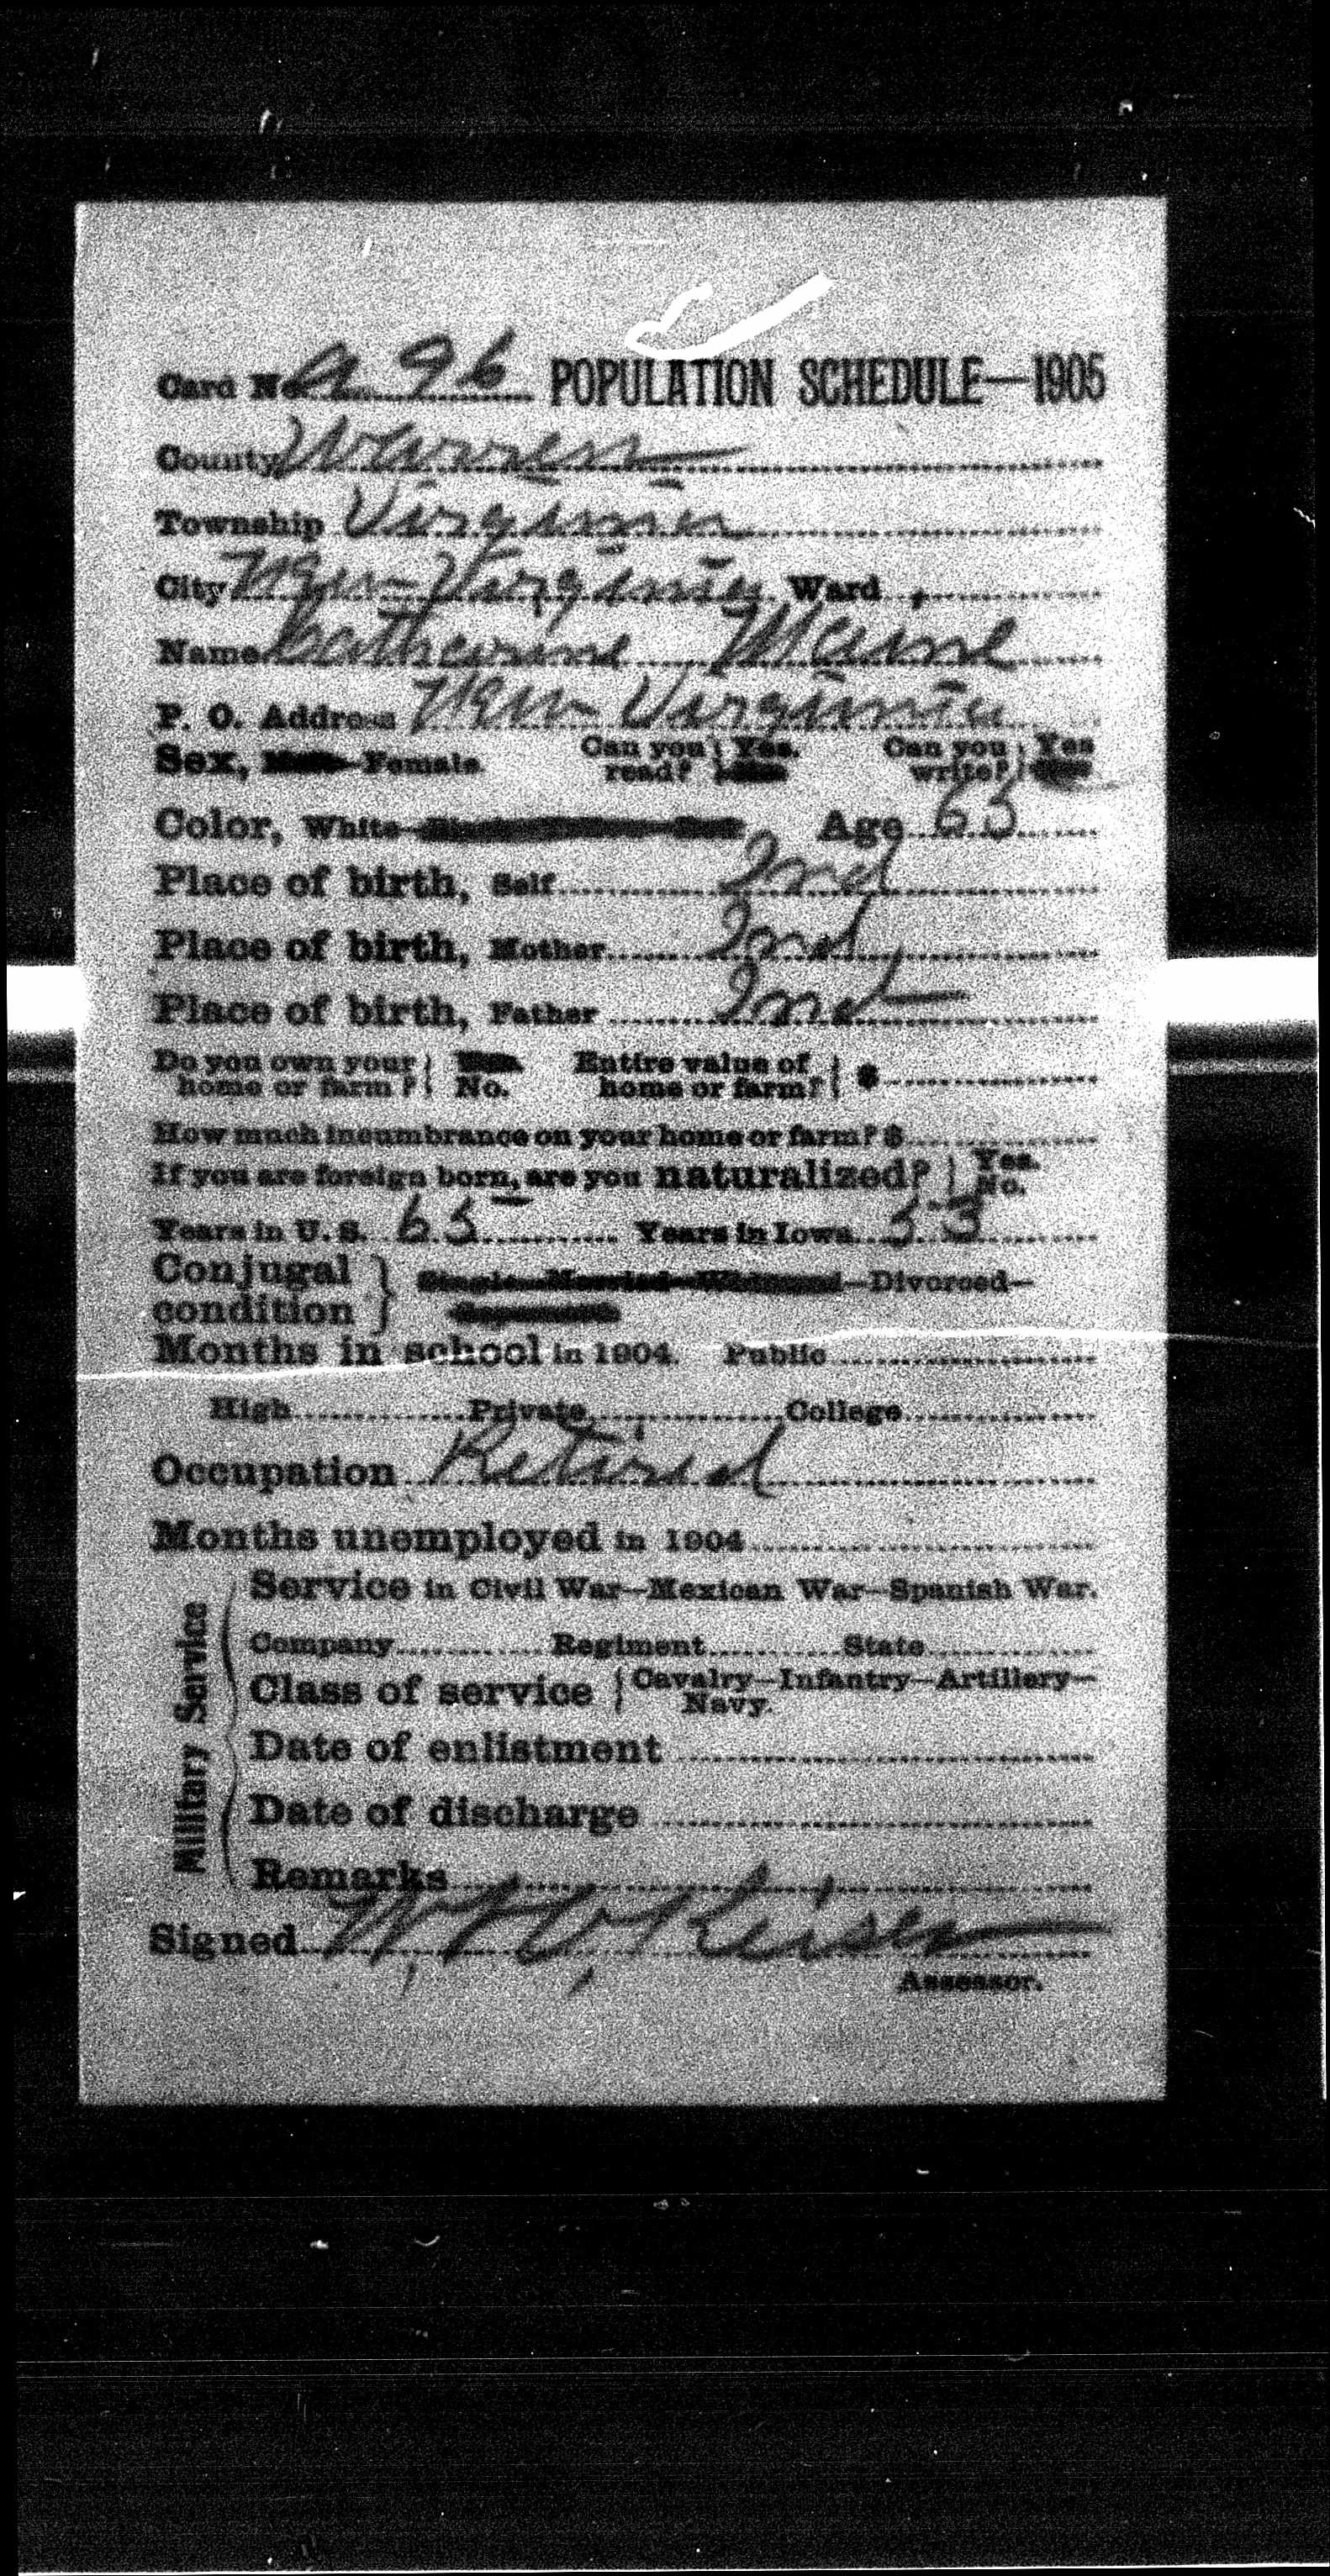 Card No. A. 96 POPULATION SCHEDULE—1905
County Warren
Township Virginia
City New Virginia Ward
Name Catherine Maine
P. O. Address New Virginia
Sex, Female. Can you read? Yes. Can you write? Yes
Color, White Age 65
Place of birth, Self Ind
Place of birth, Mother Ind
Place of birth, Father Ind
Do you own your home or farm? No. Entire value of home or farm? $
How much incumbrance on your home or farm? $
If you are foreign born, are you naturalized? Yes. No.
Years in U. S. 65 Years in Iowa 53
Conjugal condition Single—Married—Widowed—Divorced—
Separated
Months in school in 1904. Public
High Private College
Occupation Retired
Months unemployed in 1904
Military Service
Service in Civil War—Mexican War—Spanish War.
Company Regiment State
Class of service Cavalry—Infantry—Artillery—
Navy.
Date of enlistment
Date of discharge
Remarks
Signed Reisen
Assessor.